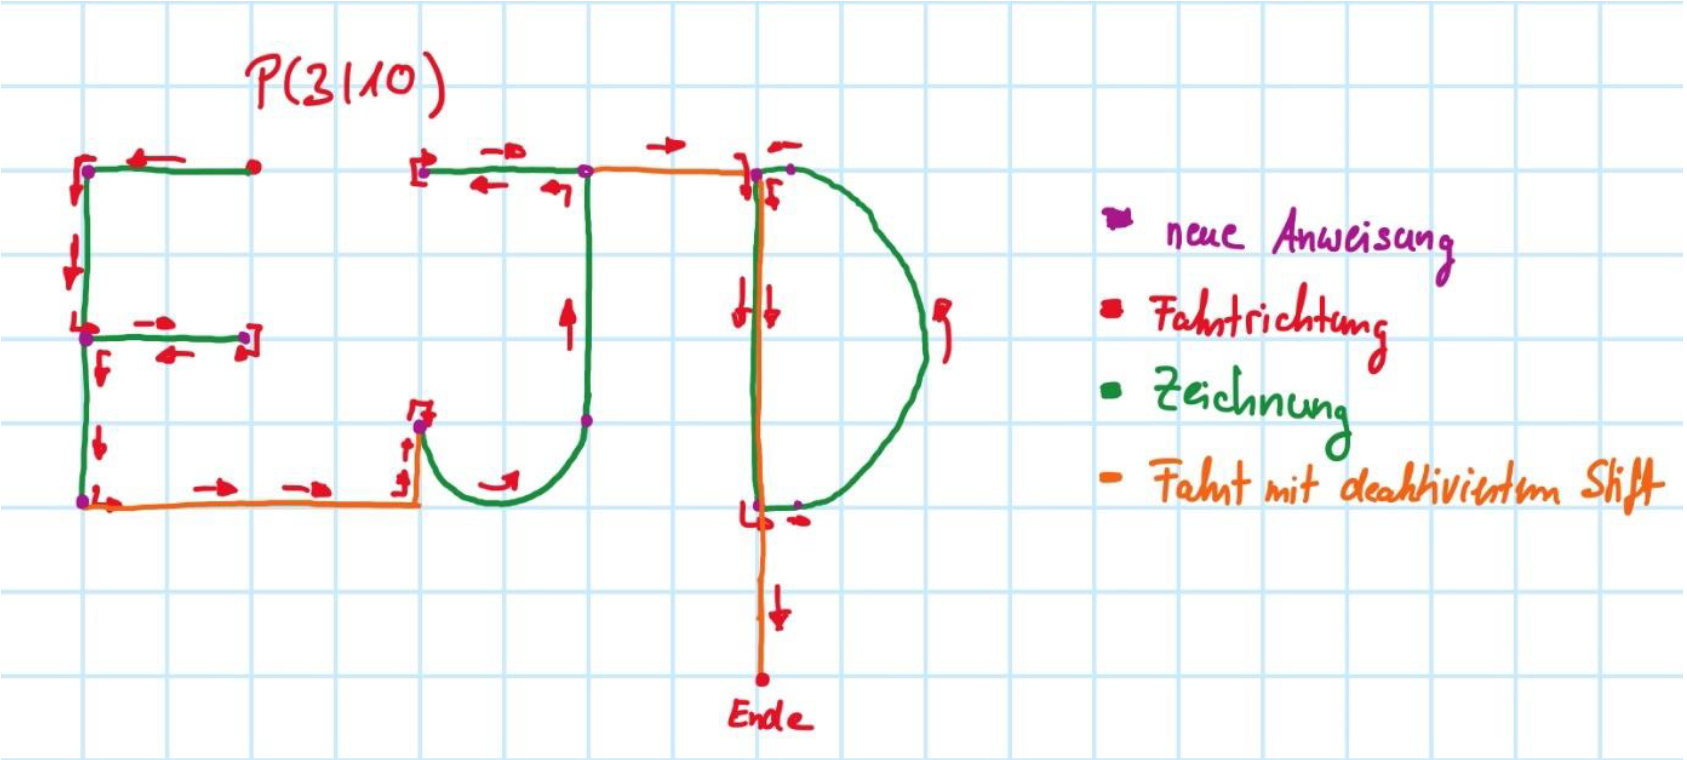 P(3|10)
neue Anweisung
Fahrtrichtung
Zeichnung
Fahrt mit deaktiviertem Stift
Ende